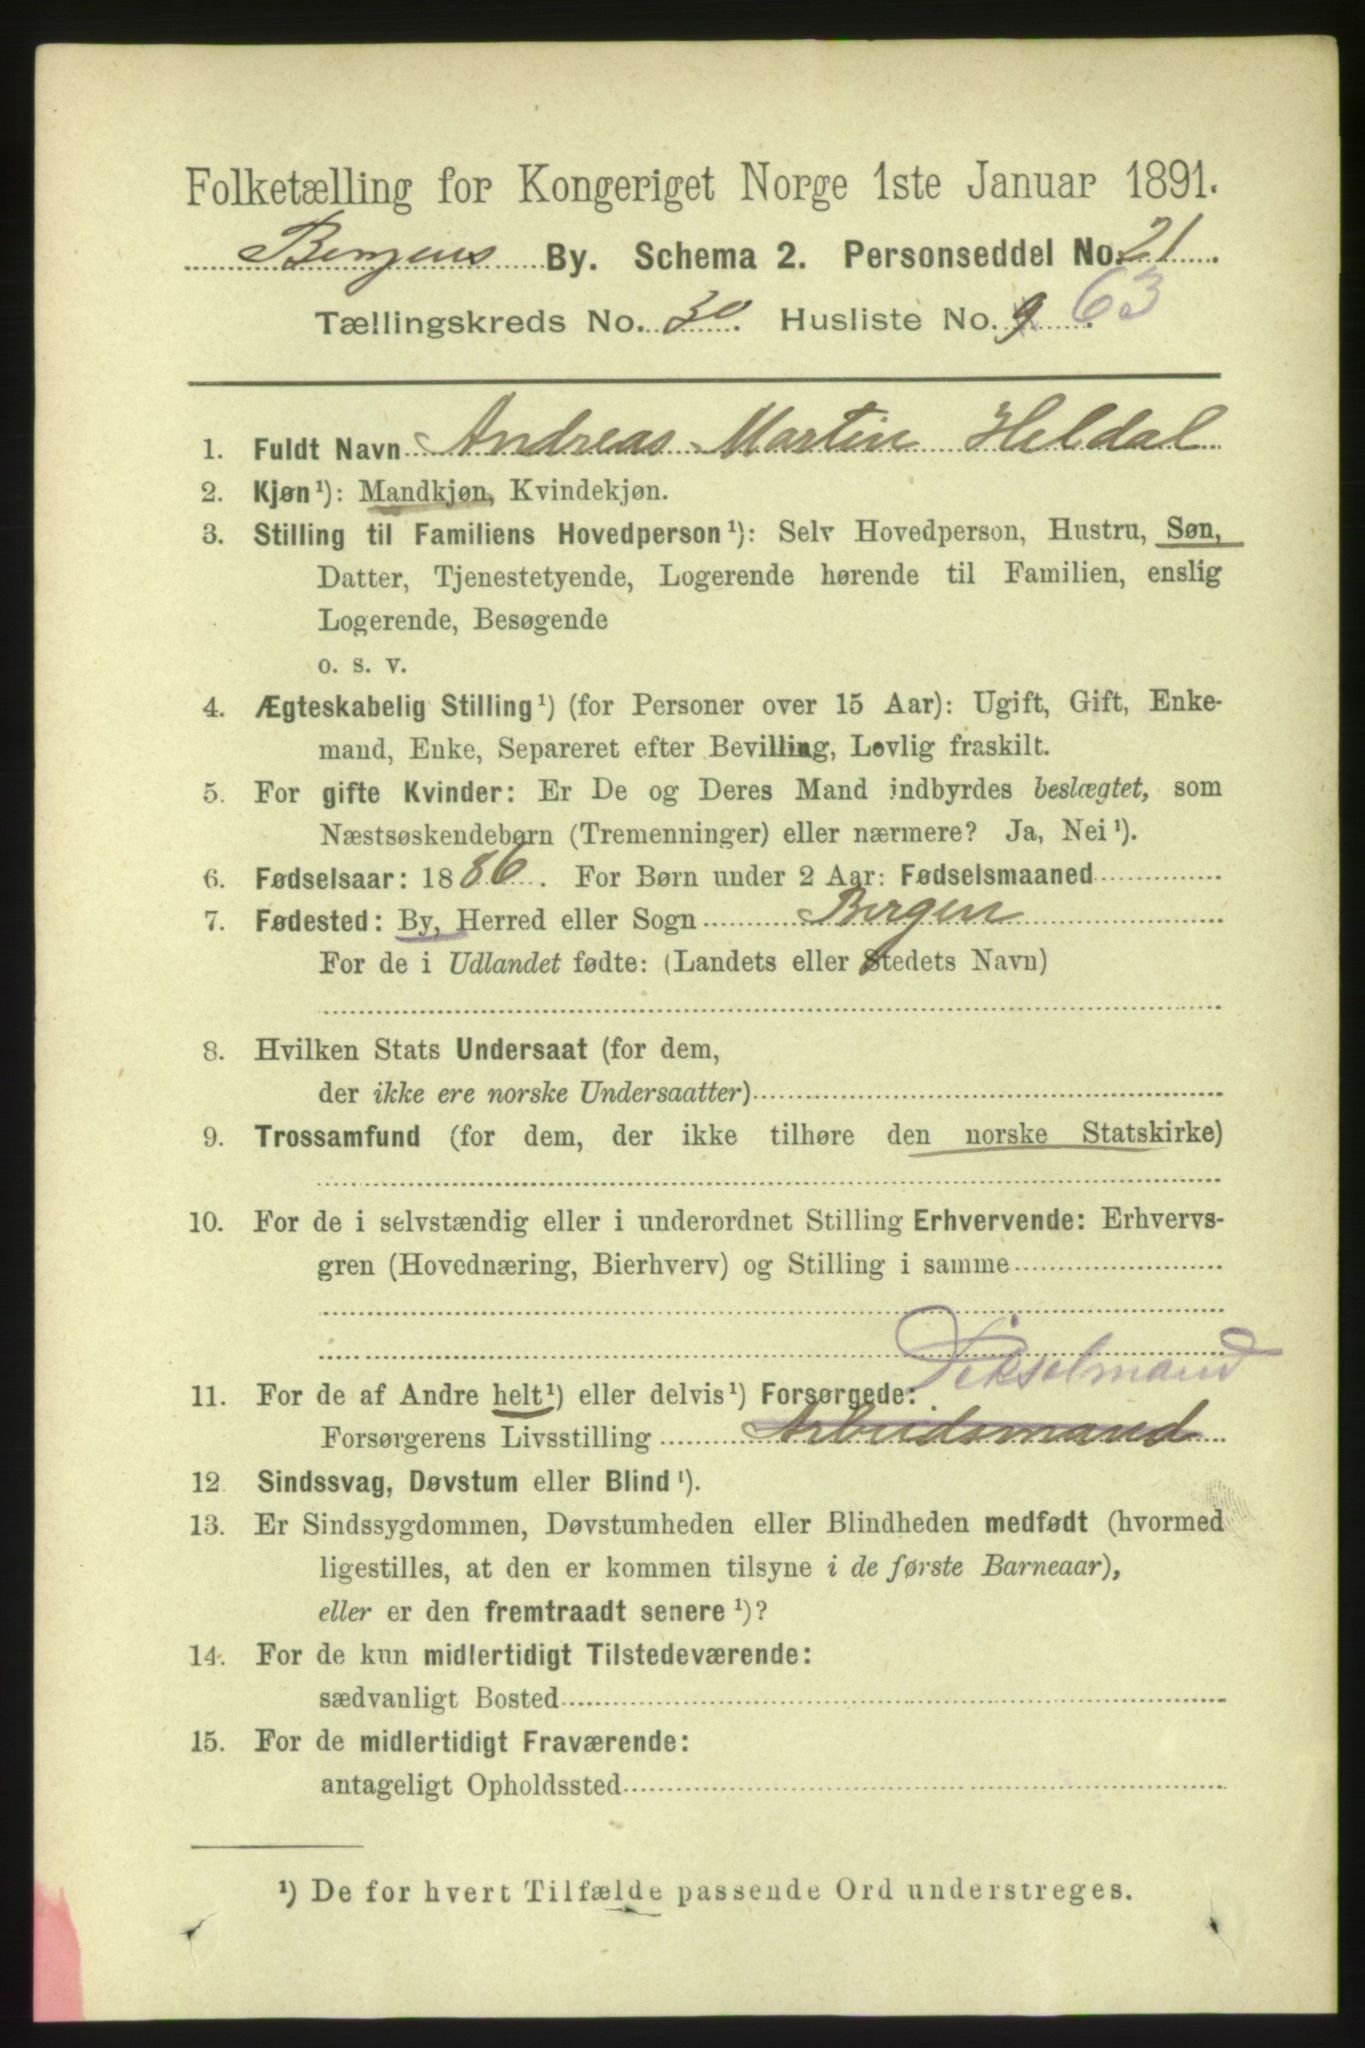 Folketælling for Kongeriget Norge 1ste Januar 1891.
Bergens By. Schema 2. Personseddel No. 21.
Tællingskreds No. 30. Husliste No. 9 63.
1. Fuldt Navn Andreas Martin Heldal
2. Kjøn¹): Mandkjøn, Kvindekjøn.
3. Stilling til Familiens Hovedperson¹): Selv Hovedperson, Hustru, Søn,
Datter, Tjenestetyende, Logerende hørende til Familien, enslig
Logerende, Besøgende
o. s. v.
4. Ægteskabelig Stilling¹) (for Personer over 15 Aar): Ugift, Gift, Enke-
mand, Enke, Separeret efter Bevilling, Lovlig fraskilt.
5. For gifte Kvinder: Er De og Deres Mand indbyrdes beslægtet, som
Næstsøskendebørn (Tremenninger) eller nærmere? Ja, Nei¹).
6. Fødselsaar: 1886. For Børn under 2 Aar: Fødselsmaaned
7. Fødested: By, Herred eller Sogn Bergen
For de i Udlandet fødte: (Landets eller Stedets Navn)
8. Hvilken Stats Undersaat (for dem,
der ikke ere norske Undersaatter)
9. Trossamfund (for dem, der ikke tilhøre den norske Statskirke)
10. For de i selvstændig eller i underordnet Stilling Erhvervende: Erhvervs-
gren (Hovednæring, Bierhverv) og Stilling i samme
11. For de af Andre helt¹) eller delvis¹) Forsørgede:
Forsørgerens Livsstilling Arbeidsmand
12 Sindssvag, Døvstum eller Blind¹).
13. Er Sindssygdommen, Døvstumheden eller Blindheden medfødt (hvormed
ligestilles, at den er kommen tilsyne i de første Barneaar),
eller er den fremtraadt senere¹)?
14. For de kun midlertidigt Tilstedeværende:
sædvanligt Bosted
15. For de midlertidigt Fraværende:
antageligt Opholdssted
¹) De for hvert Tilfælde passende Ord understreges.